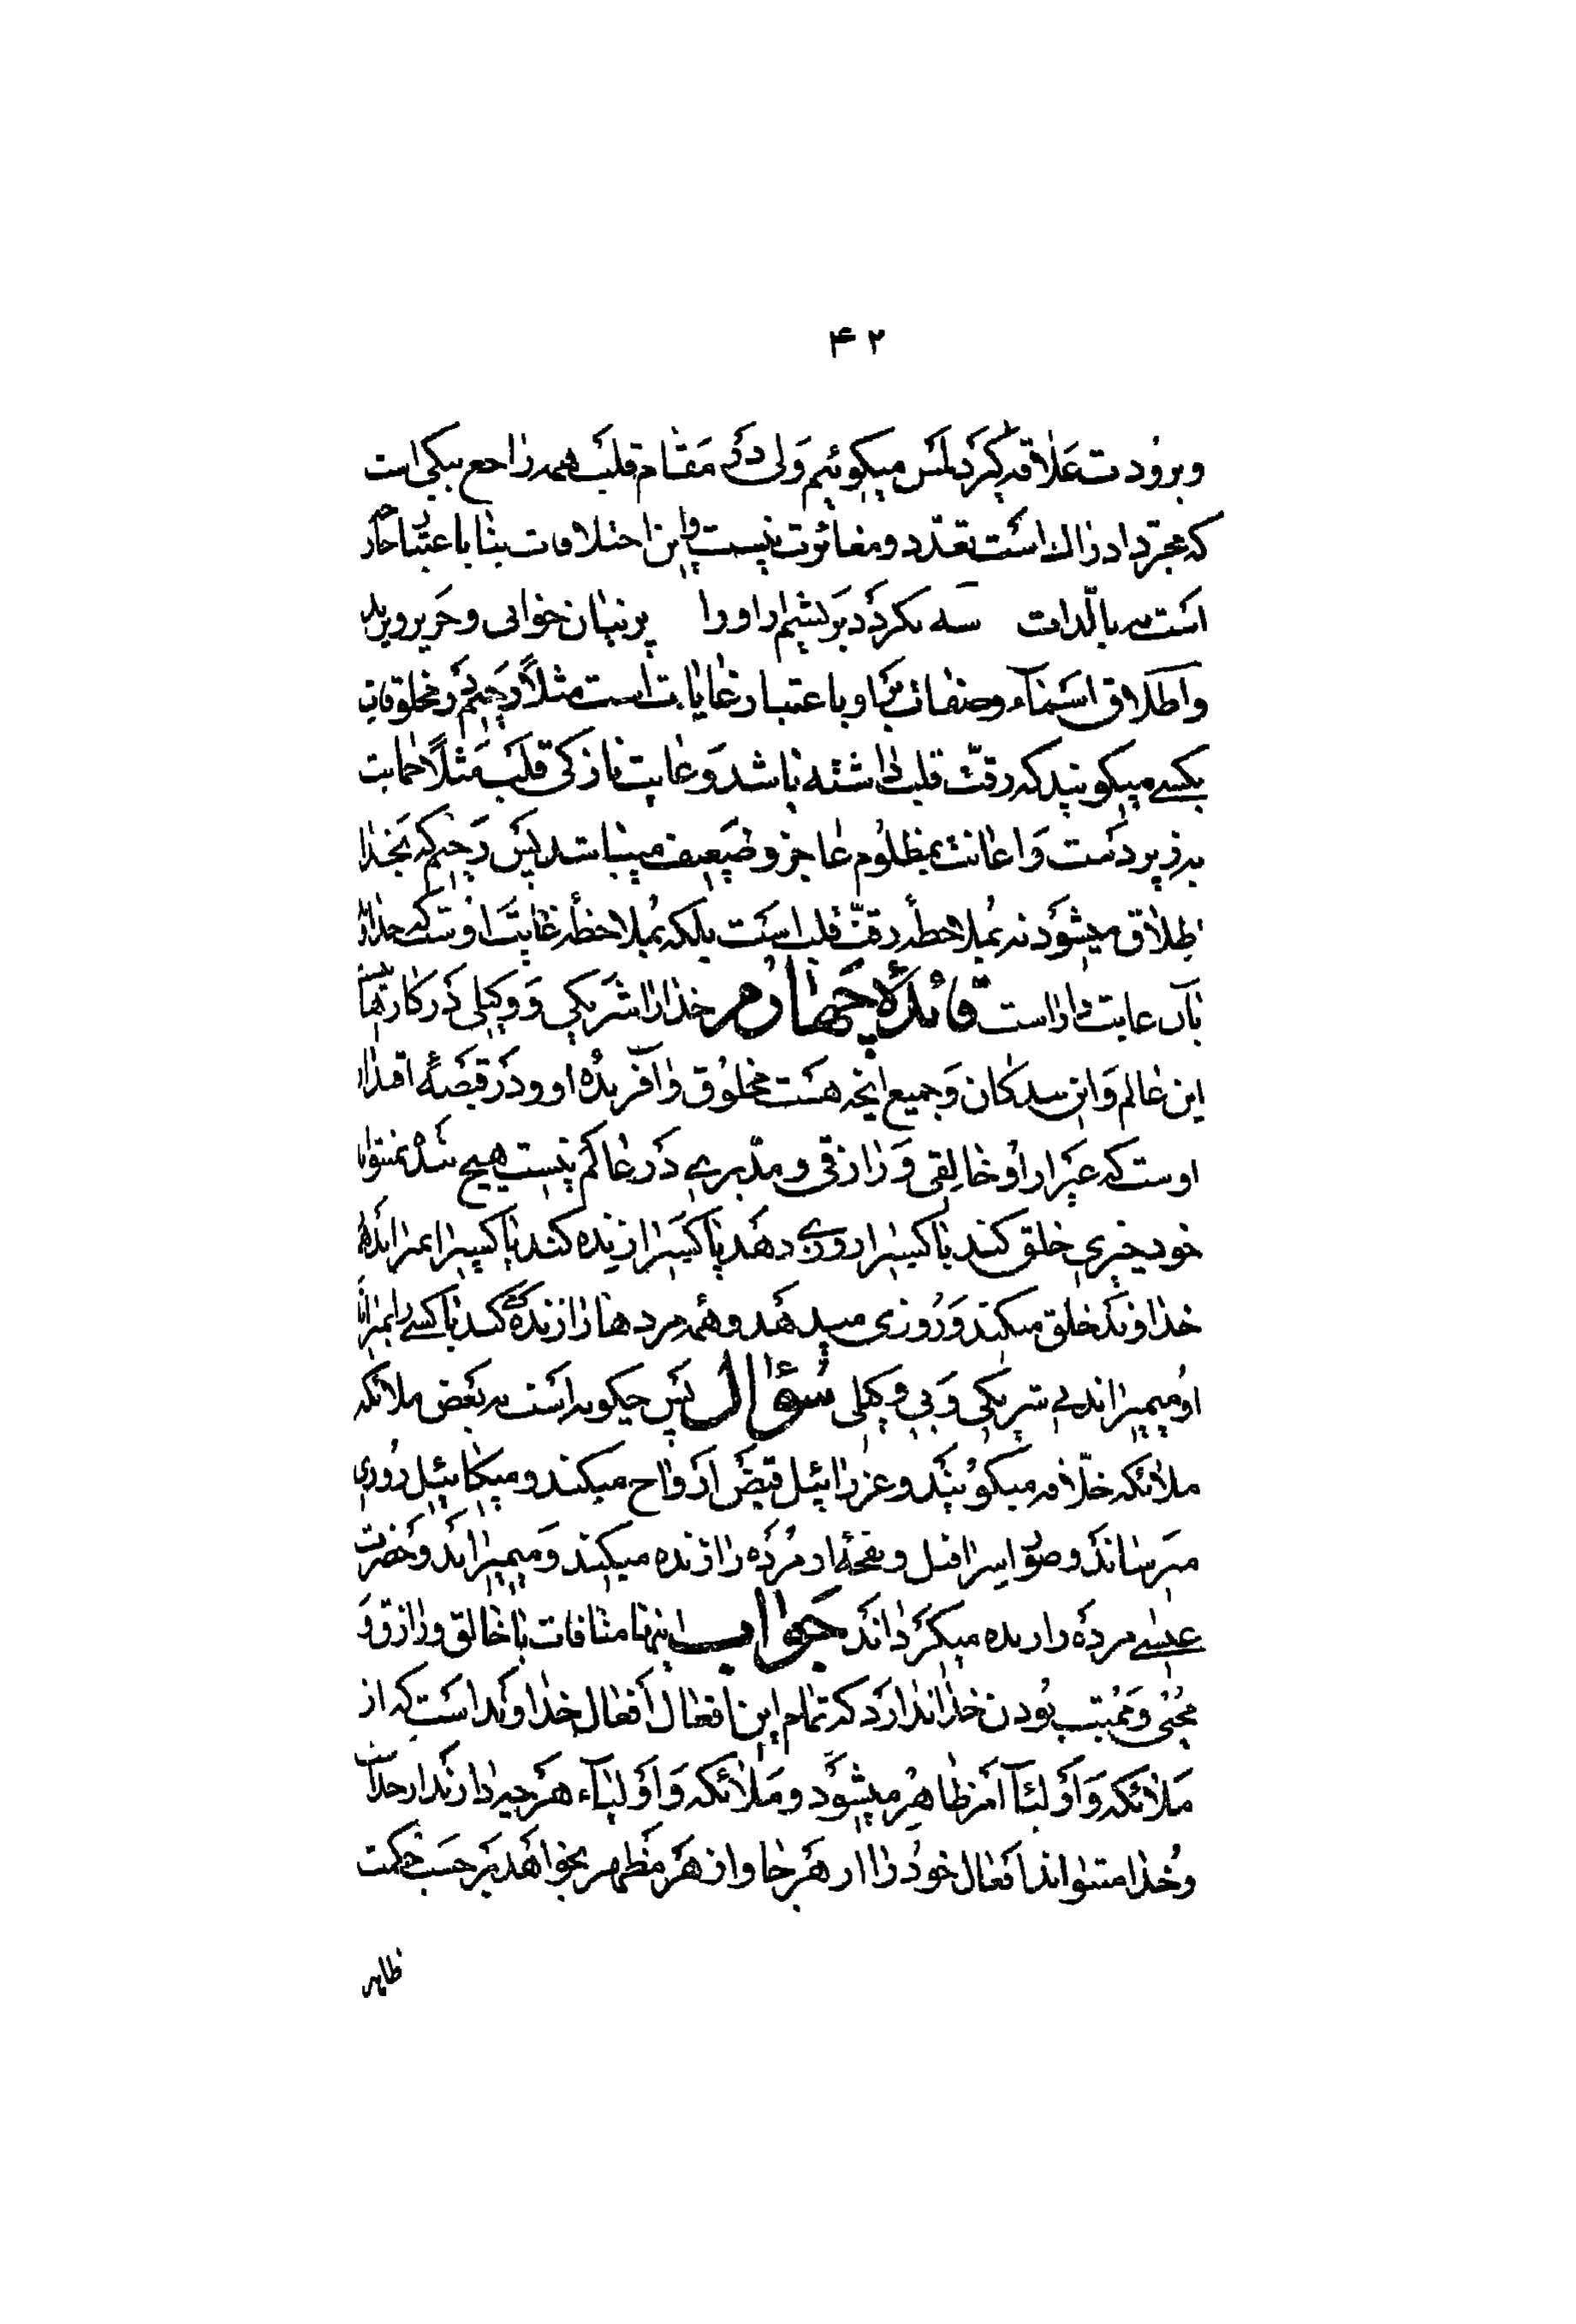 ۴۲
و برودت علاقه کرد لمس میگوئیم ولی در مقام قلب همه راجع بیکی است
که مجرد ادراک است تعدد و مغائرت نیست و این اختلافات بنا باعتبار خارج
است نه بالذات سه نکردد بریشم ار او را پرنیان خوانی و حریر و پرند
و اطلاق اسماء و صفات بر او باعتبار غایات است مثلاً رحیم در مخلوقات
بکسے میگویند که رقت قلب داشته باشد و غایت نازکی قلب مثلاً حمایت
بر زیر دست و اعانت بمظلوم عاجز و ضعیف میباشد پس رحیم که بخدا
اطلاق میشود نه بملاحظه رقت قلب است بلکه بملاحظه غایت اوست که خدا
بآن غایت داراست فائدهٔ چهارم خدا را شریکی و وکیلی در کار نیست
این عالم و این بندگان و جمیع آنچه هست مخلوق و آفریدهٔ او و در قبضهٔ اقتدار
اوست که غیر از او خالقی و رازقی و مدبری در عالم نیست هیچ بنده نمیتواند
خود چیزی خلق کند یا کسیرا روزی دهد یا کسیرا زنده کند یا کسیرا بمیراند
خداوند خلق میکند و روزی میدهد و همه مردها را زنده کند یا کسے را بمیراند
او میمیراند بی شریکی و بی وکیلی سؤال پس چگونه است که بعض ملائکه
ملائکه خلاقه میگویند و عزرائیل قبض ارواح میکند و میکائیل روزی
میرساند و صور اسرافیل و نفحهٔ او مرده را زنده میکند و میمیراند و حضرت
عیسے مرده را زنده میگرداند جواب اینها منافات با خالق و رازق و
محیی و ممیت بودن خدا ندارد که تمام این افعال افعال خداوند است که از
ملائکه و اولیآء امر ظاهر میشود و ملائکه و اولیآء هرچه دارند از خداست
و خدا میتواند افعال خود را از هر جا و از هر مظهر بخواهد بر حسب حکمت
ظاهر